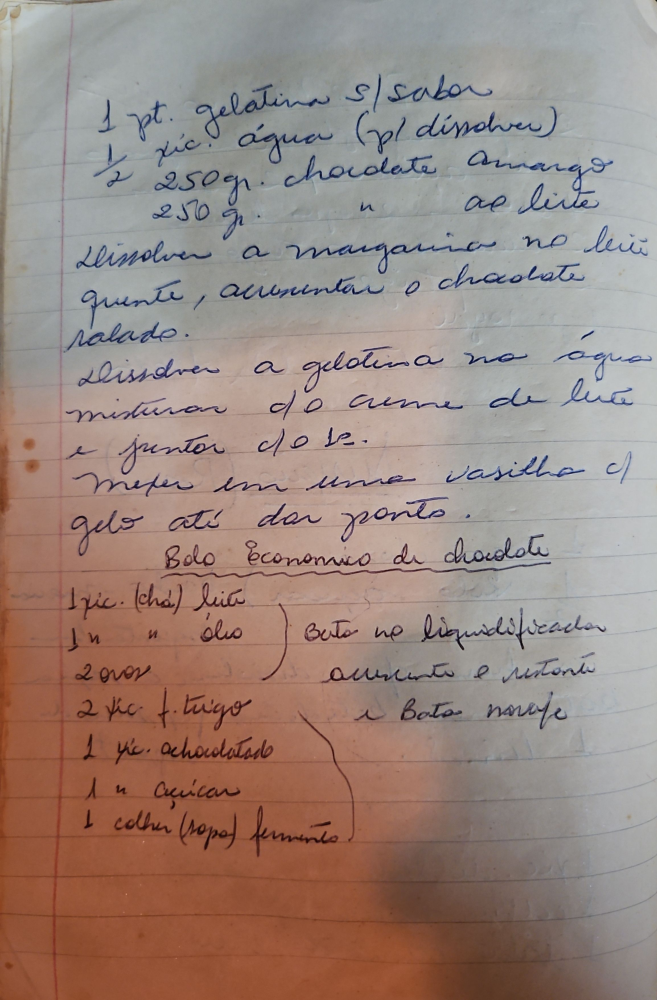 1 pt. gelatina s/ sabor
1/2 xíc. água (p/ dissolver)
250 gr. chocolate amargo
250 gr. " ao leite
Dissolver a margarina no leite
quente, acrescentar o chocolate
ralado.
Dissolver a gelatina na água
misturar c/ o creme de leite
e juntar c/ o 1º.
Mexer em uma vasilha c/
gelo até dar ponto.
Bolo Economico de chocolate
1 xíc. (chá) leite
1 " " óleo
2 ovos
Bata no liquidificador
acrescente o restante
e Bata
2 xíc. f. trigo
1 xíc. achocolatado
1 " açúcar
1 colher (sopa) fermento